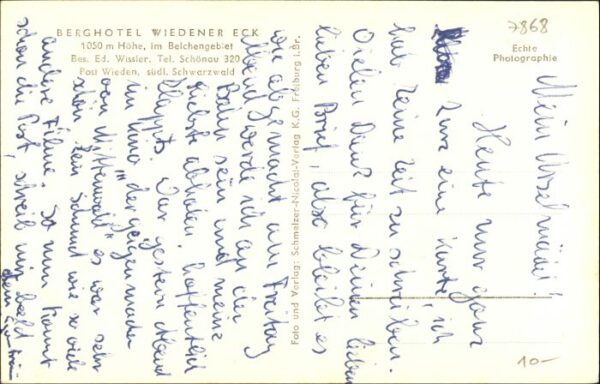 BERGHOTEL WIEDENER ECK
1050 m Höhe, im Belchengebiet
Bes. Ed. Wissler. Tel. Schönau 320
Post Wieden, südl. Schwarzwald
7868
Echte
Photographie
Foto und Verlag: Schmelzer-Nicolai-Verlag K.G. Freiburg i. Br.
Mein Urselmädel!
Heute nur ganz
kurz eine Karte, ich
hab keine Zeit zu schreiben.
Vielen Dank für Deinen lieben
lieben Brief, also bleibt es
wie abgemacht am Freitag
Abend werde ich an der
Bahn sein und meine
Liebste abholen. hoffentlich
klappts. War gestern Abend
im Kino "der Geigenmacher
von Mittenwald" es war sehr
schön kein Schund wie so viele
andere Filme. So nun kommt
schon die Post, schreib mir bald
dein
10-